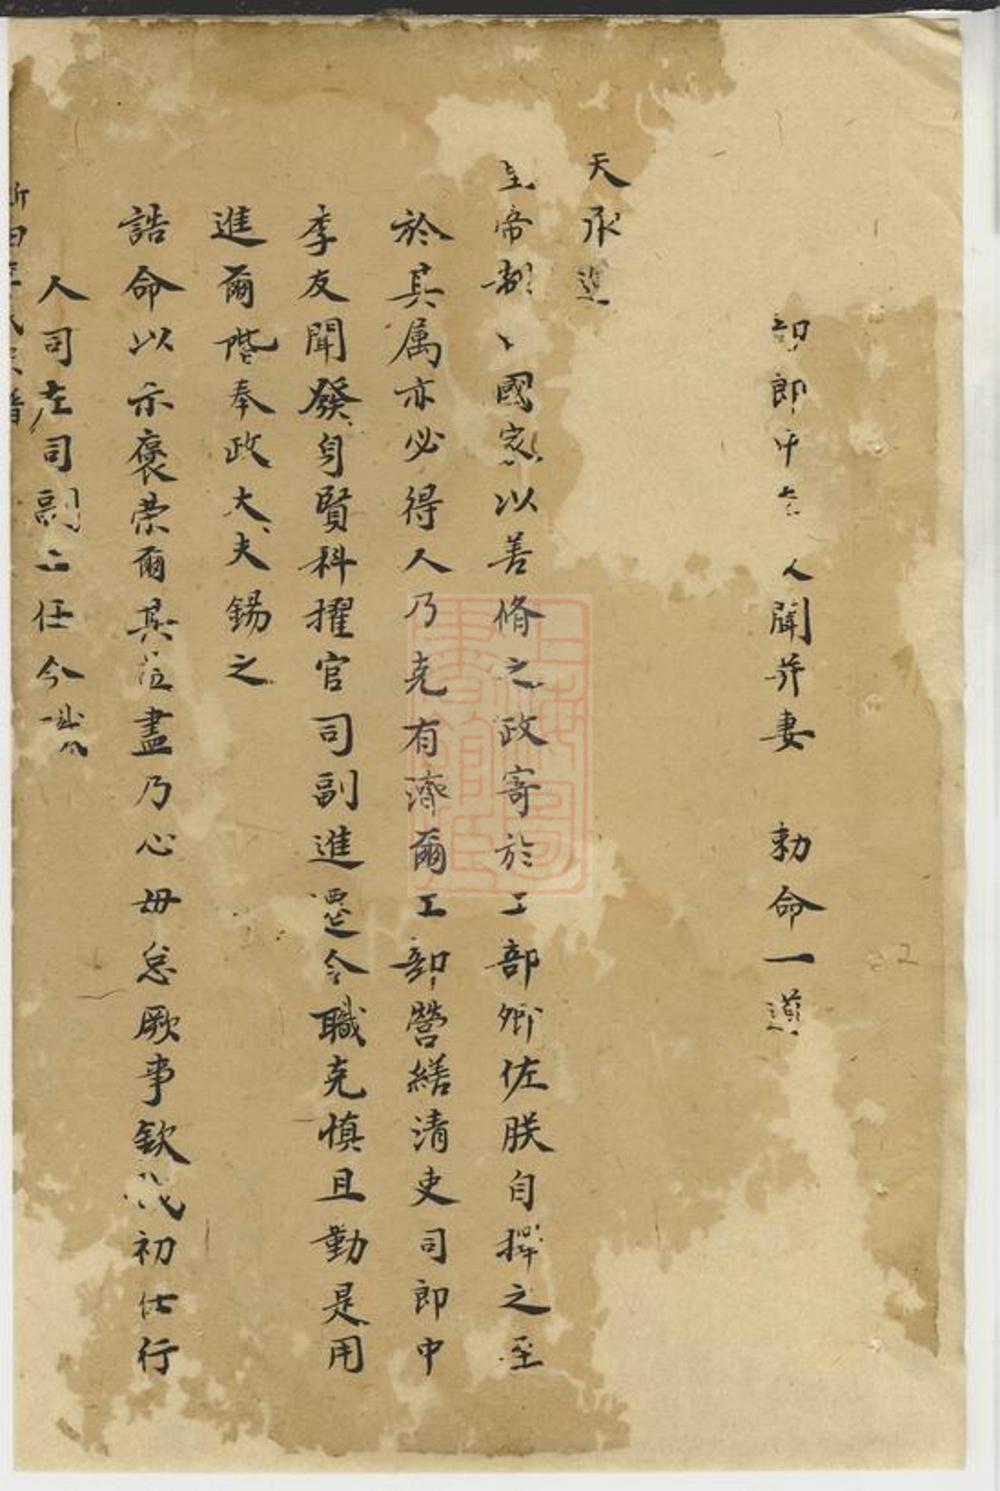 部郎中 人聞并妻 勅命一道
天承運
皇帝制 國家以善脩之政寄於工部卿佐朕自擇之至
於其属亦必得人乃克有濟爾工部營繕清吏司郎中
李友聞發身賢科擢官司副進遷今職克慎且勤是用
進爾階奉政大夫錫之
誥命以示褒榮爾其 盡乃心毋怠厥事欽哉初仕行
人司左司副二任今職
上海圖書館藏